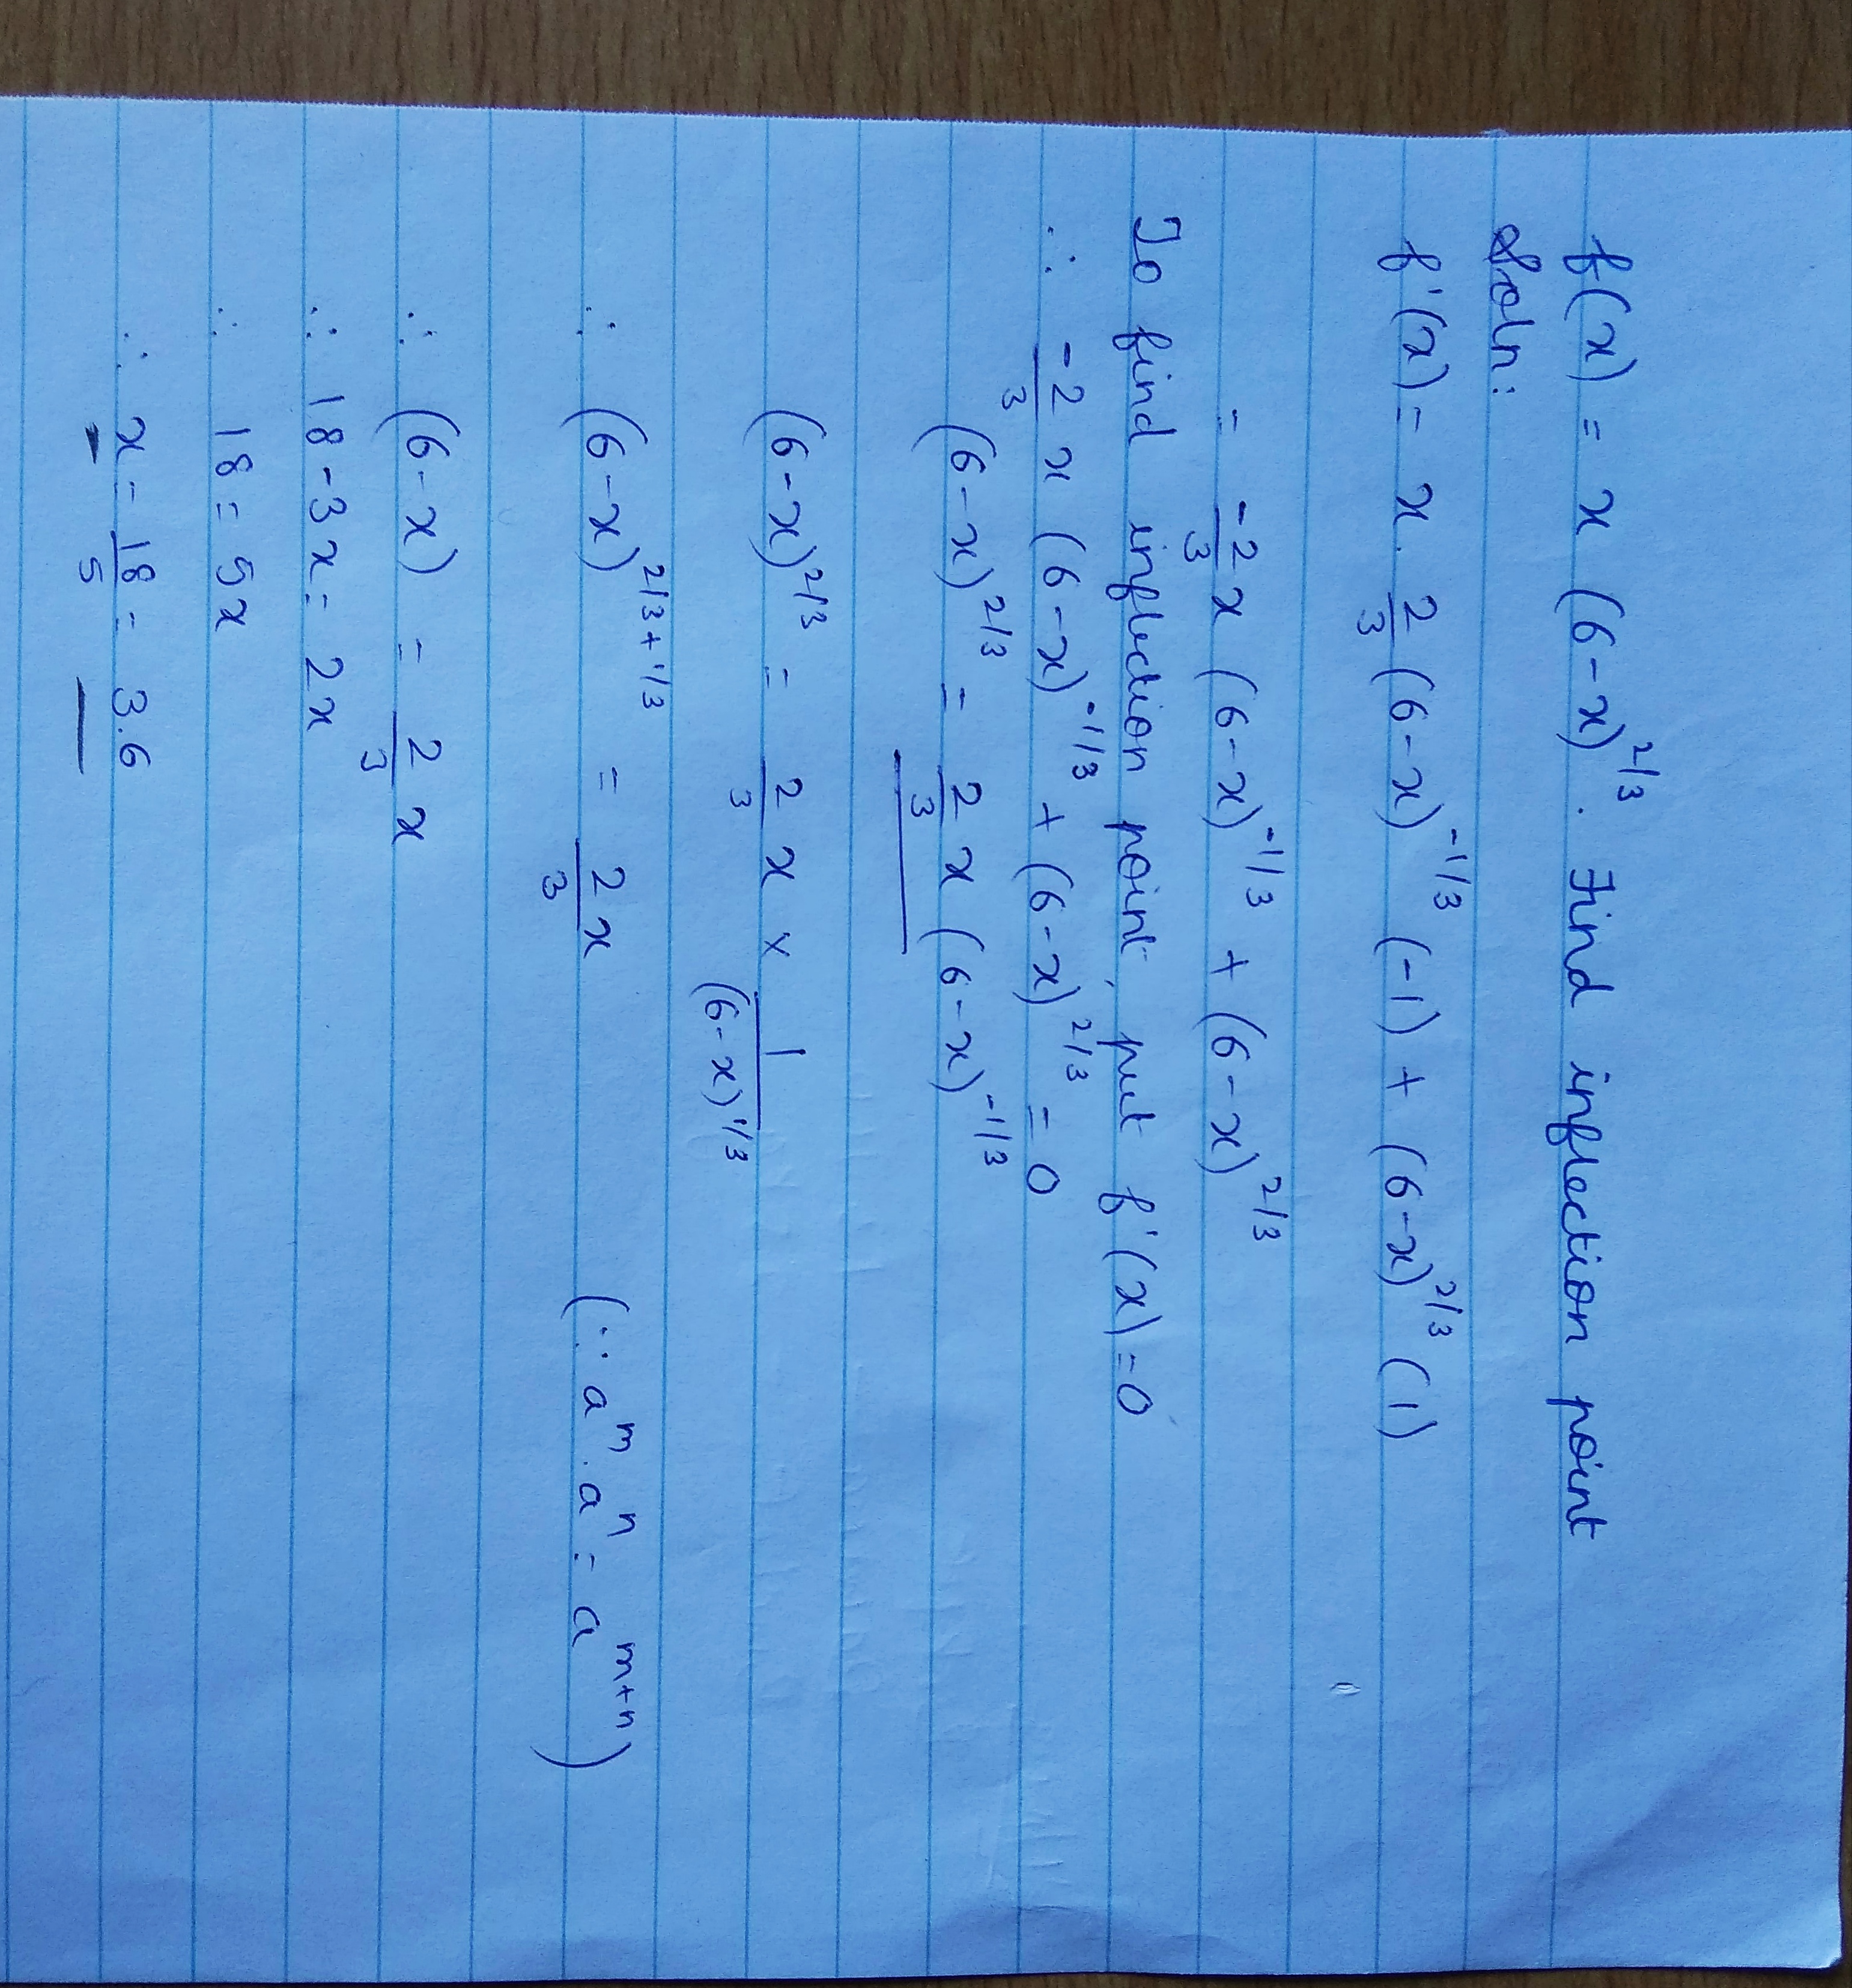 f(x) = x (6-x)^2/3 . Find inflection point
Soln:
f'(x) = x . 2/3 (6-x)^-1/3 (-1) + (6-x)^2/3 (1)
= -2/3 x (6-x)^-1/3 + (6-x)^2/3
To find inflection point, put f'(x) = 0
∴ -2/3 x (6-x)^-1/3 + (6-x)^2/3 = 0
(6-x)^2/3 = 2/3 x (6-x)^-1/3
(6-x)^2/3 = 2/3 x × 1/(6-x)^1/3
∴ (6-x)^2/3+1/3 = 2/3 x (∵ a^m . a^n = a^m+n)
∴ (6-x) = 2/3 x
∴ 18-3x = 2x
∴ 18 = 5x
∴ x = 18/5 = 3.6